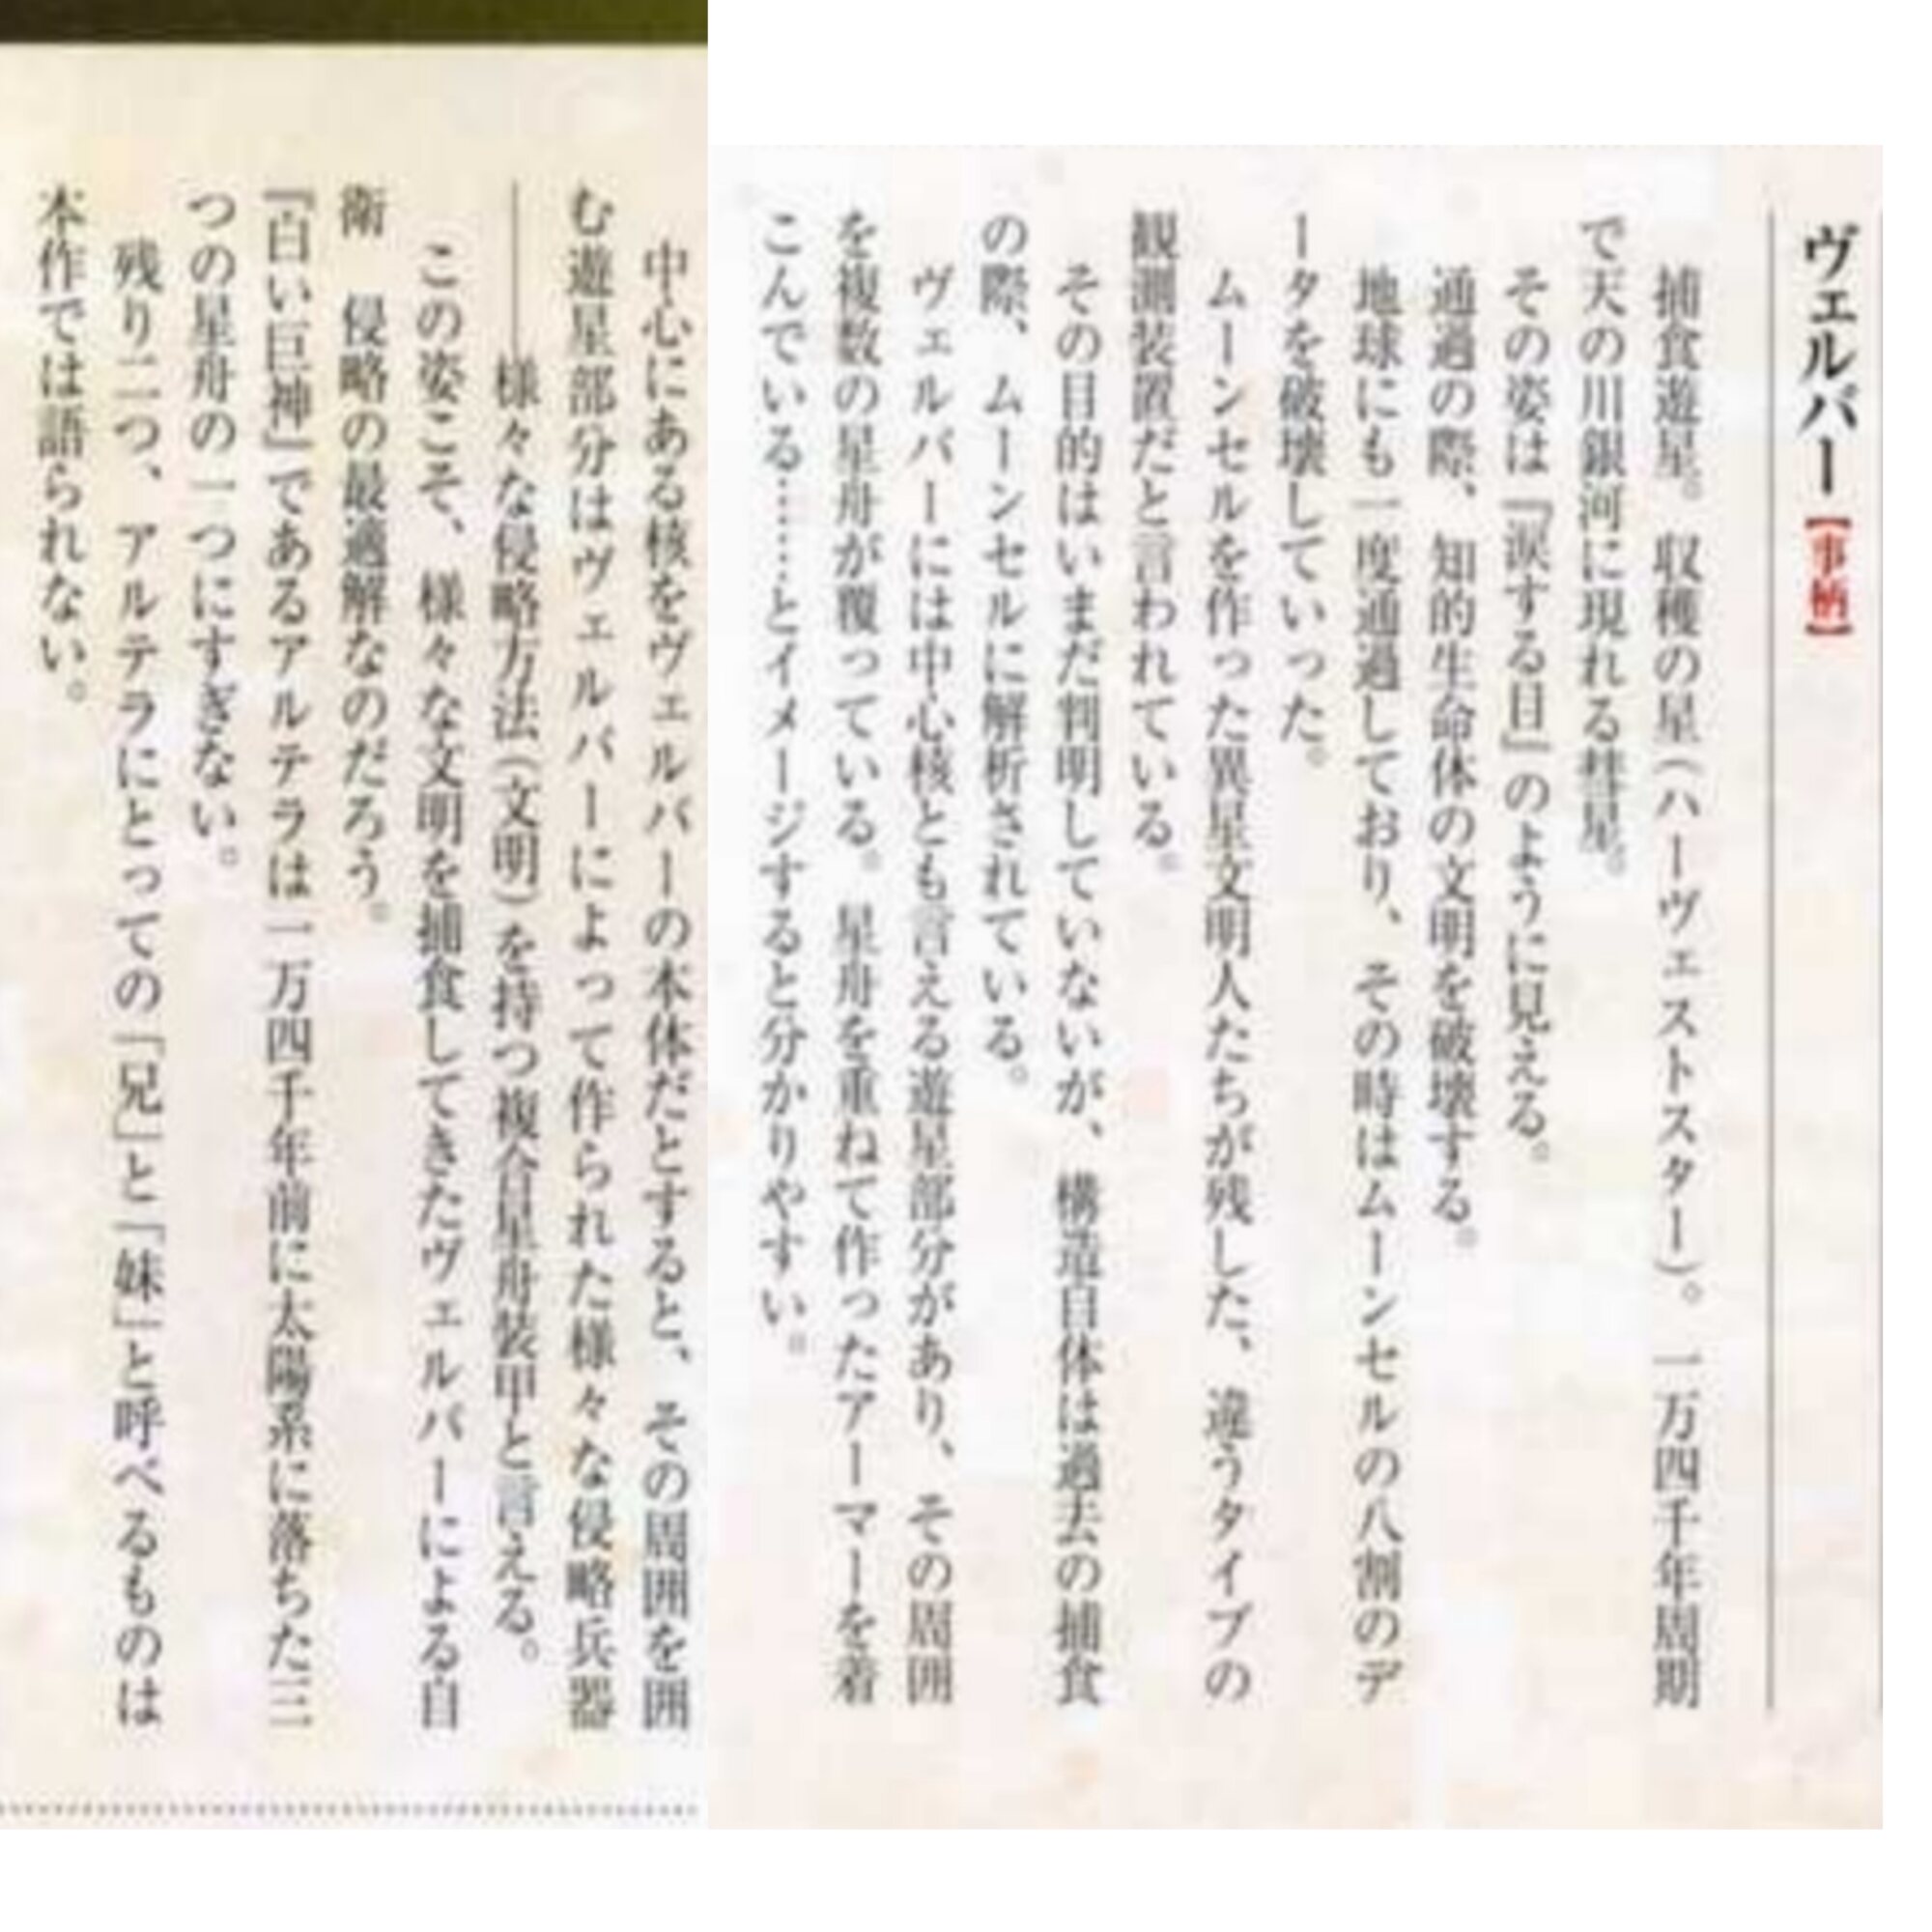 ヴェルバー【事柄】
捕食遊星。収穫の星(ハーヴェストスター)。一万四千年周期
で天の川銀河に現れる彗星。
その姿は『涙する目』のように見える。
通過の際、知的生命体の文明を破壊する。
地球にも一度通過しており、その時はムーンセルの八割のデ
ータを破壊していった。
ムーンセルを作った異星文明人たちが残した、違うタイプの
観測装置だと言われている。
その目的はいまだ判明していないが、構造自体は過去の捕食
の際、ムーンセルに解析されている。
ヴェルバーには中心核とも言える遊星部分があり、その周囲
を複数の星舟が覆っている。星舟を重ねて作ったアーマーを着
こんでいる……とイメージすると分かりやすい。
中心にある核をヴェルバーの本体だとすると、その周囲を囲
む遊星部分はヴェルバーによって作られた様々な侵略兵器
――様々な侵略方法(文明)を持つ複合星舟装甲と言える。
この姿こそ、様々な文明を捕食してきたヴェルバーによる自
衛 侵略の最適解なのだろう。
『白い巨神』であるアルテラは一万四千年前に太陽系に落ちた三
つの星舟の一つにすぎない。
残り二つ、アルテラにとっての「兄」と「妹」と呼べるものは
本作では語られない。